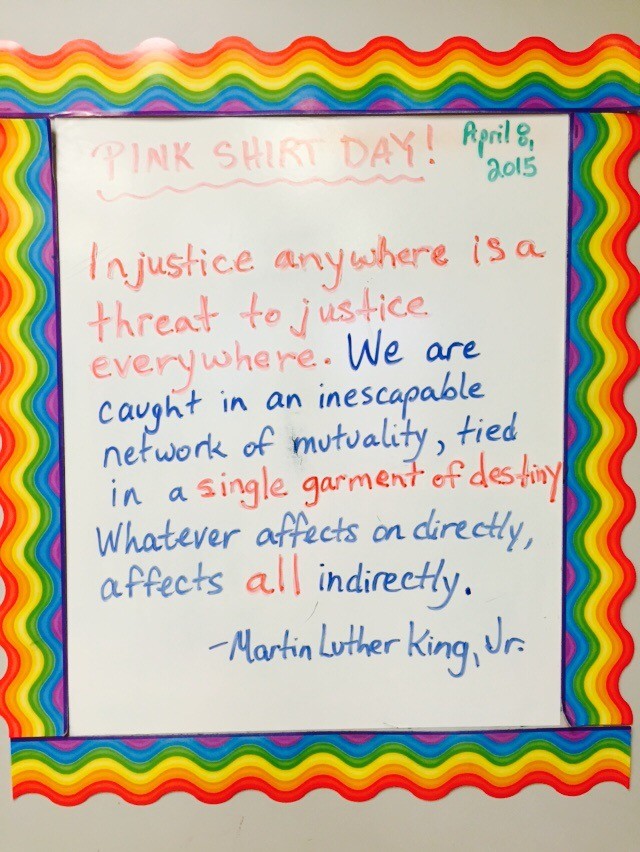 PINK SHIRT DAY!
April 8,
2015
Injustice anywhere is a
threat to justice
everywhere. We are
caught in an inescapable
network of mutuality, tied
in a single garment of destiny
Whatever affects on directly,
affects all indirectly.
-Martin Luther King, Jr.